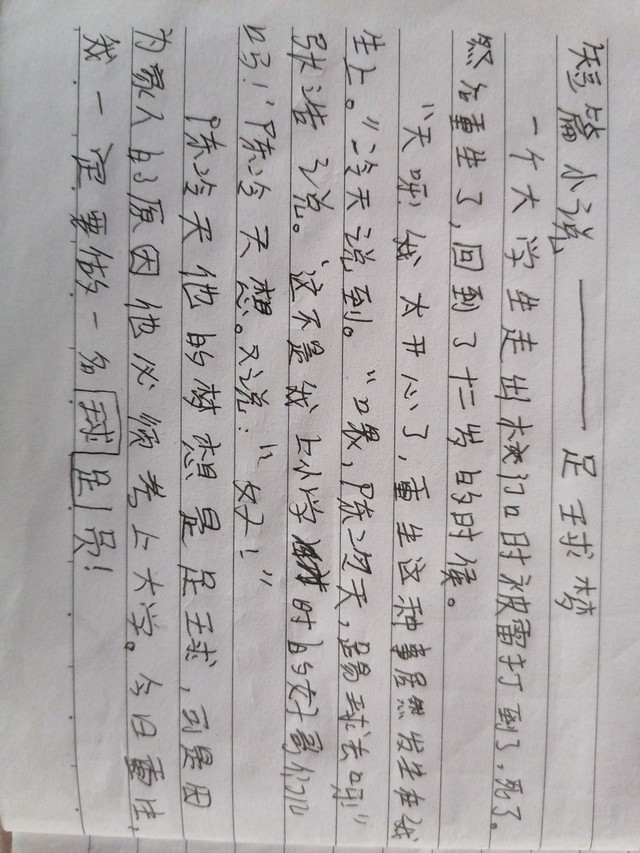 短篇小说——足球梦
一个大学生走出校门口时被雷打到了,死了。
然后重生了,回到了十二岁的时候。
“天呀!我太开心了,重生这种事居然发生在我
生上。”冷天说到。“嘿,陈冷天,踢球去呀!”
张浩说。“这不是我上小学时的好哥们
吗!”陈冷天想。又说:“好!”
陈冷天他的梦想是足球,可是因
为家人的原因他必须考上大学。今日重生,
我一定要做一名球足员!